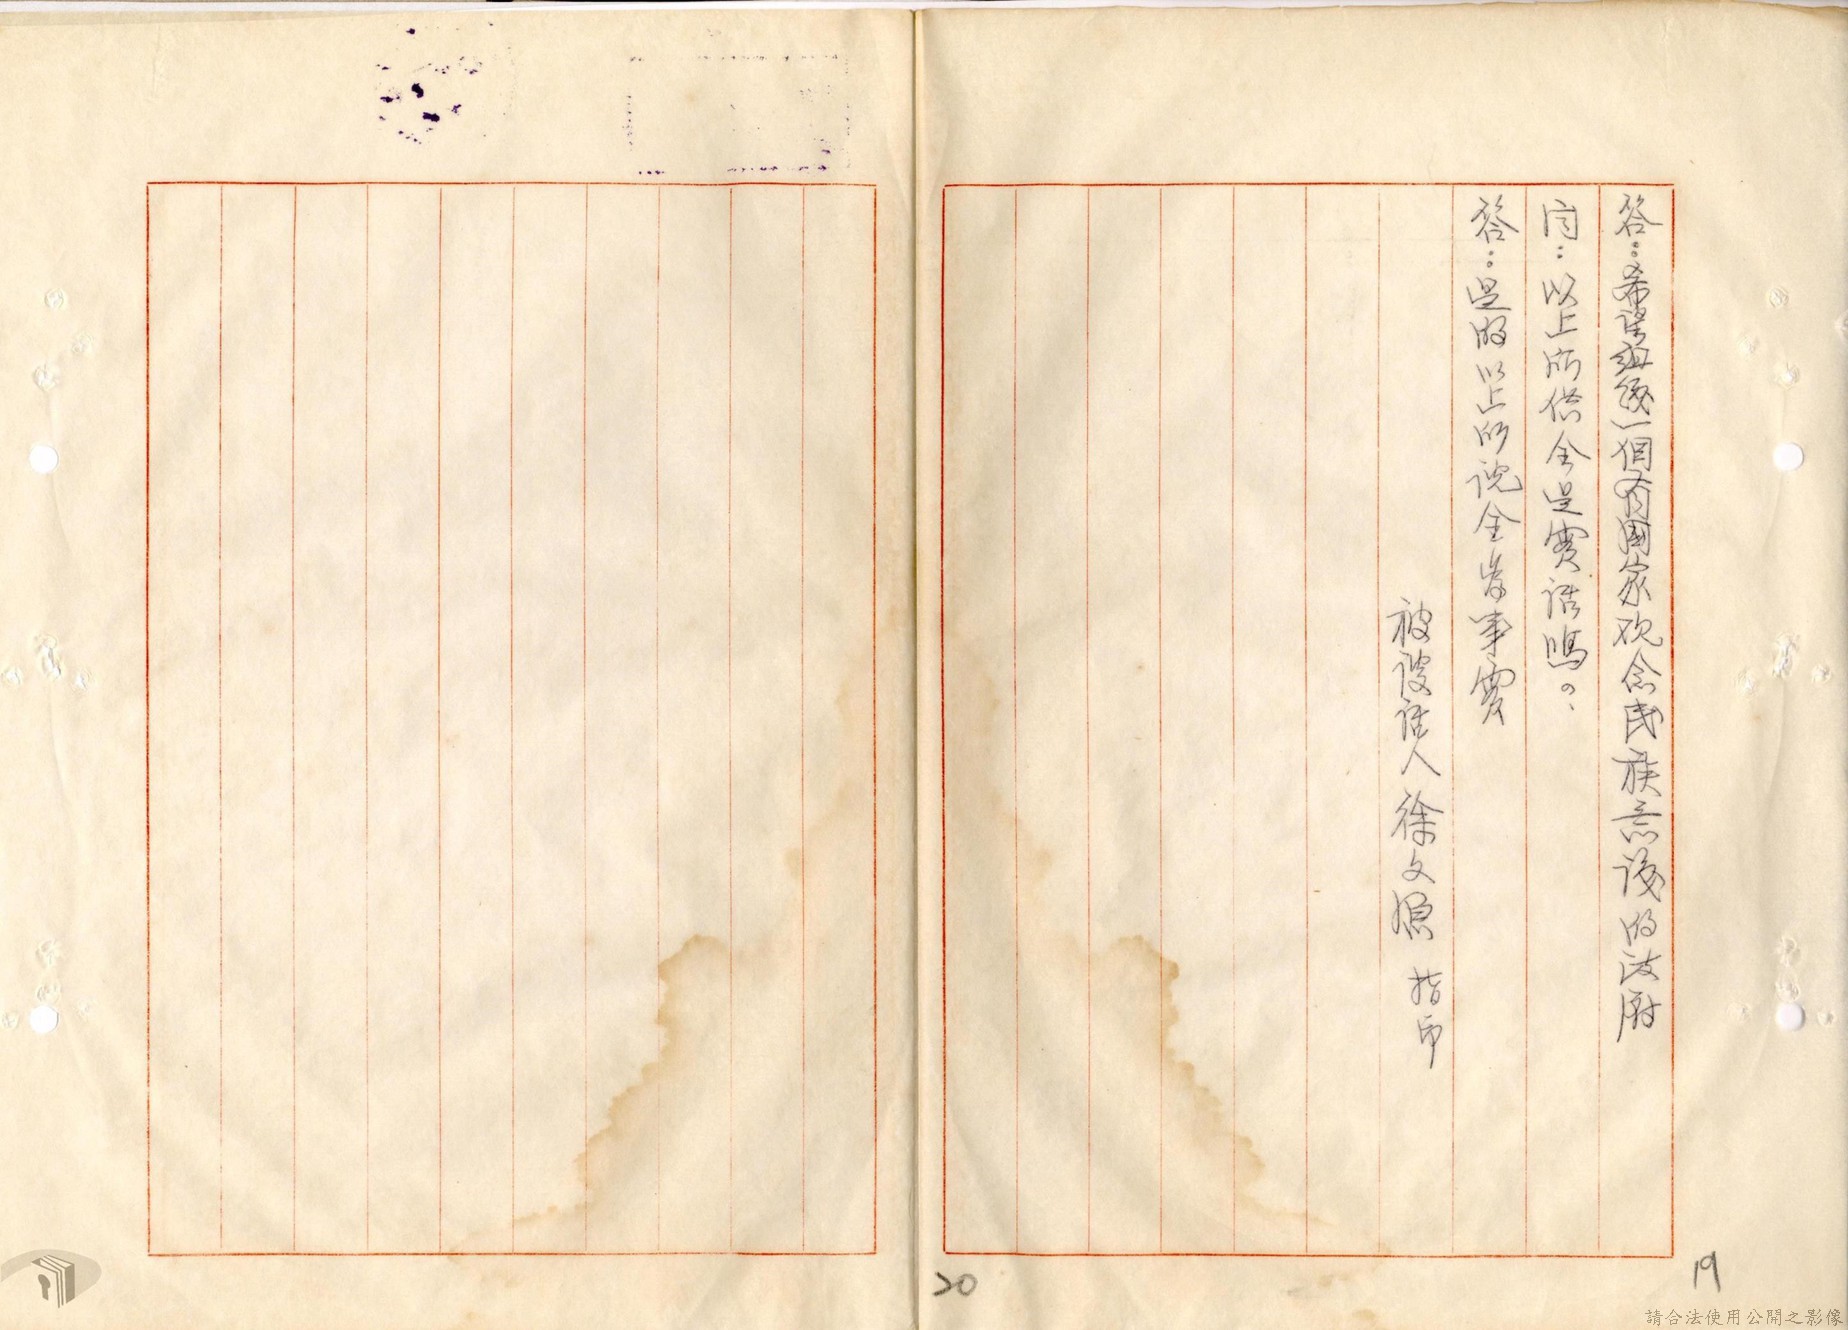 答：希望組織一個有國家观念民族意識的政府
问：以上所供全是實話嗎？
答：是的以上所說全属事實
被談話人徐文源 指印
19
20
請合法使用公開之影像